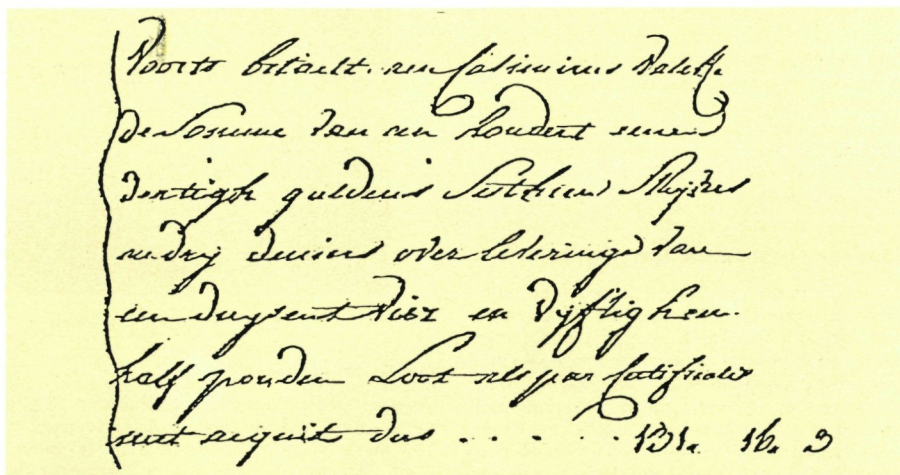 Voorts betaelt aen Casimirus Valck
de Somme van een hondert eenen
dertigh guldens sesthien stuyvers
en dry deniers over leveringe van
een duysent vier en vyftigh een
half ponden Loot als par Certificatie
met acquit dus . . . . . 131. 16. 3